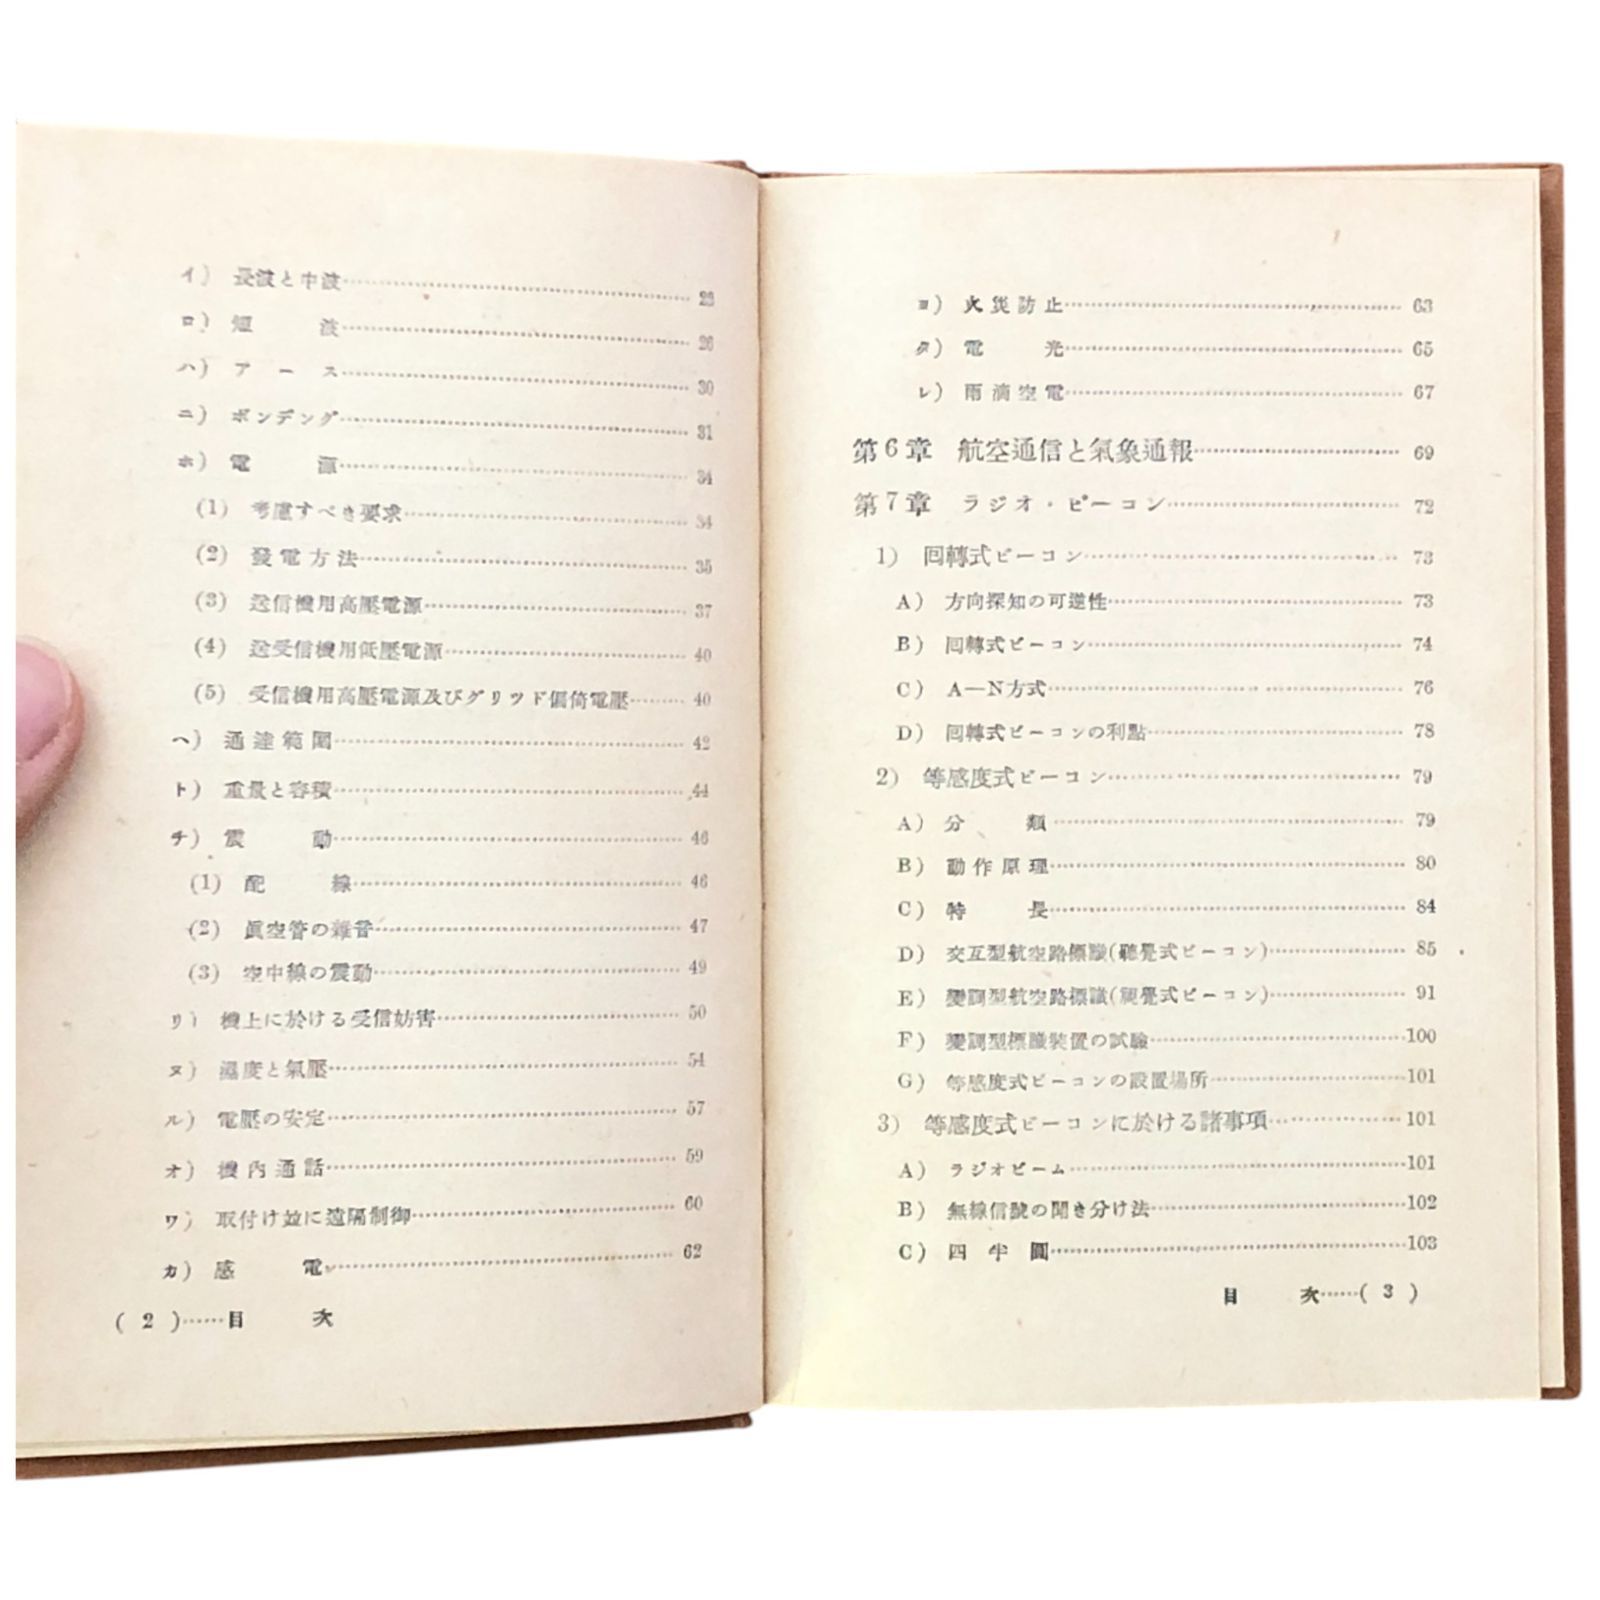 イ) 長波と中波……23
ロ) 短波……26
ハ) アース……30
ニ) ボンデング……31
ホ) 電源……34
(1) 考慮すべき要求……34
(2) 發電方法……35
(3) 送信機用高壓電源……37
(4) 送受信機用低壓電源……40
(5) 受信機用高壓電源及びグリツド偏倚電壓……40
ヘ) 通達範圍……42
ト) 重量と容積……44
チ) 震動……46
(1) 配線……46
(2) 眞空管の雜音……47
(3) 空中線の震動……49
リ) 機上に於ける受信妨害……50
ヌ) 溫度と氣壓……54
ル) 電壓の安定……57
オ) 機內通話……59
ワ) 取付け並に遠隔制御……60
カ) 感電……62
( 2 )……目次
ヨ) 火災防止……63
タ) 電光……65
レ) 雨滴空電……67
第6章 航空通信と氣象通報……69
第7章 ラジオ・ビーコン……72
1) 回轉式ビーコン……73
A) 方向探知の可逆性……73
B) 回轉式ビーコン……74
C) A—N方式……76
D) 回轉式ビーコンの利點……78
2) 等感度式ビーコン……79
A) 分類……79
B) 動作原理……80
C) 特長……84
D) 交互型航空路標識(聽覺式ビーコン)……85
E) 變調型航空路標識(視覺式ビーコン)……91
F) 變調型標識裝置の試驗……100
G) 等感度式ビーコンの設置場所……101
3) 等感度式ビーコンに於ける諸事項……101
A) ラジオビーム……101
B) 無線信號の聞き分け法……102
C) 四半圓……103
目次……( 3 )